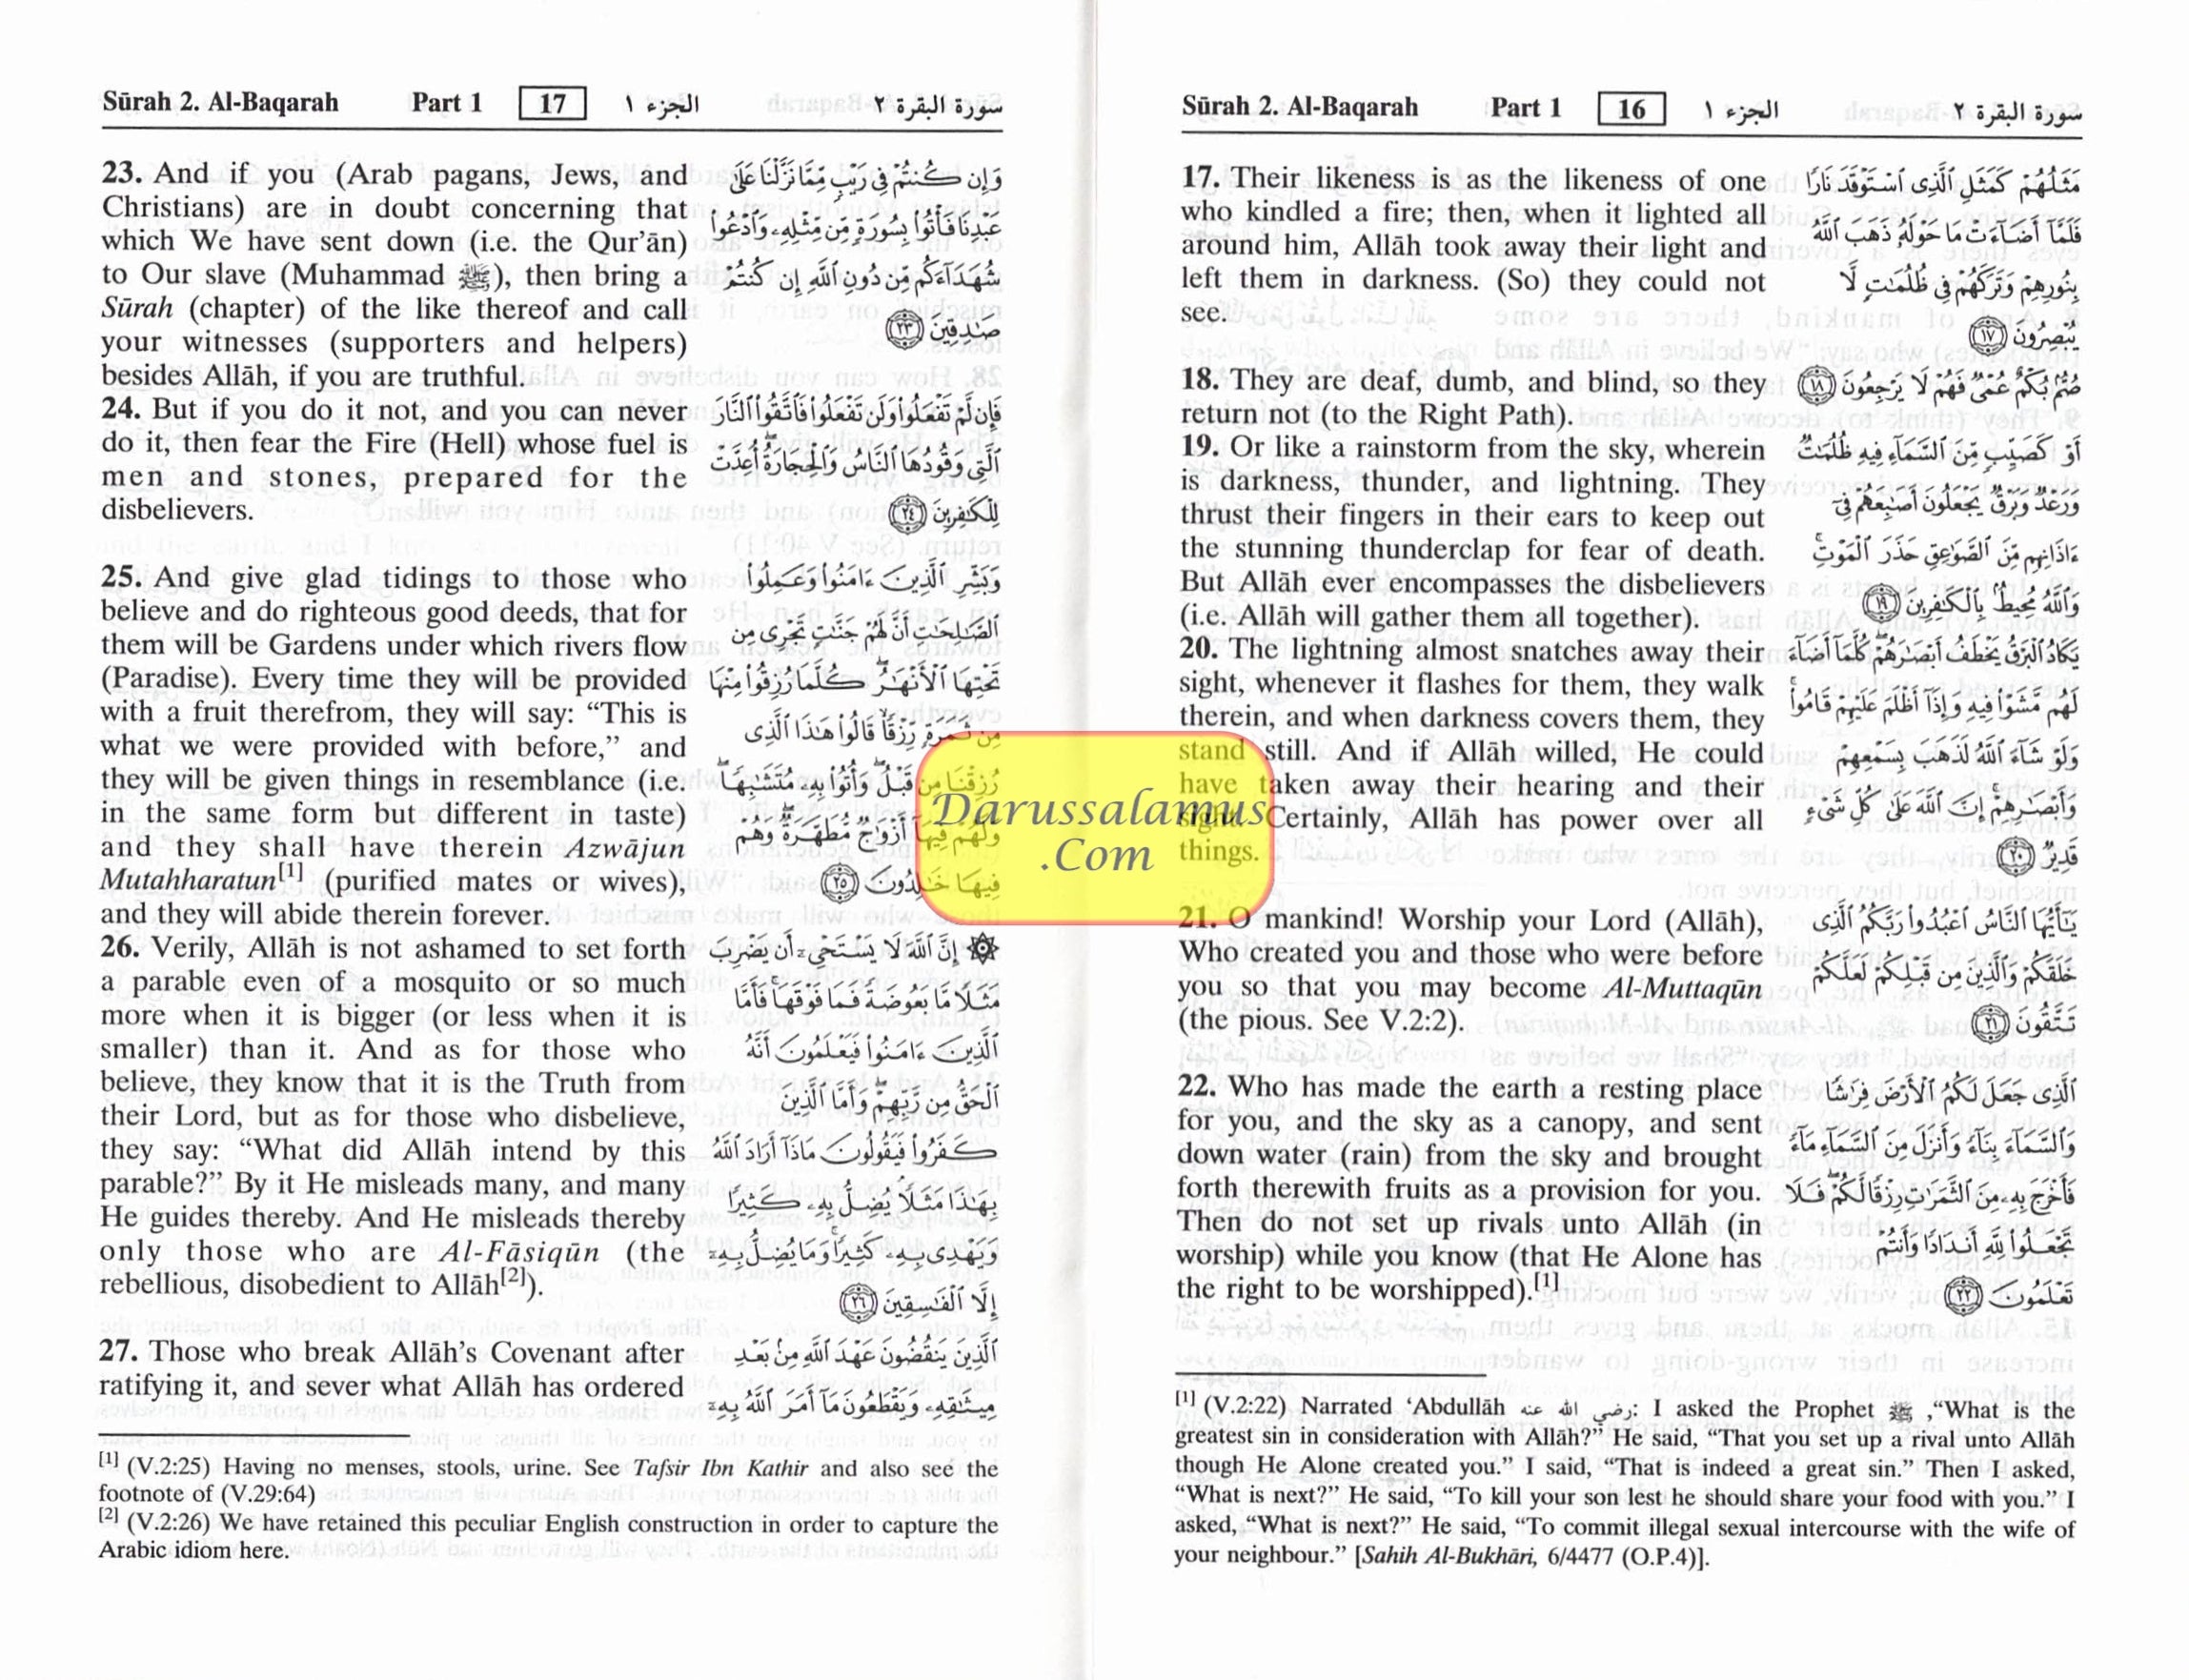 Sūrah 2. Al-Baqarah Part 1 16 الجزء ١ سورة البقرة ٢
17. Their likeness is as the likeness of one
who kindled a fire; then, when it lighted all
around him, Allāh took away their light and
left them in darkness. (So) they could not
see.
18. They are deaf, dumb, and blind, so they
return not (to the Right Path).
19. Or like a rainstorm from the sky, wherein
is darkness, thunder, and lightning. They
thrust their fingers in their ears to keep out
the stunning thunderclap for fear of death.
But Allāh ever encompasses the disbelievers
(i.e. Allāh will gather them all together).
20. The lightning almost snatches away their
sight, whenever it flashes for them, they walk
therein, and when darkness covers them, they
stand still. And if Allāh willed, He could
have taken away their hearing and their
sight. Certainly, Allāh has power over all
things.
21. O mankind! Worship your Lord (Allāh),
Who created you and those who were before
you so that you may become Al-Muttaqūn
(the pious. See V.2:2).
22. Who has made the earth a resting place
for you, and the sky as a canopy, and sent
down water (rain) from the sky and brought
forth therewith fruits as a provision for you.
Then do not set up rivals unto Allāh (in
worship) while you know (that He Alone has
the right to be worshipped).[1]
مَثَلُهُمْ كَمَثَلِ ٱلَّذِى ٱسْتَوْقَدَ نَارًا
فَلَمَّآ أَضَآءَتْ مَا حَوْلَهُۥ ذَهَبَ ٱللَّهُ
بِنُورِهِمْ وَتَرَكَهُمْ فِى ظُلُمَـٰتٍ لَّا
يُبْصِرُونَ ١٧
صُمٌّۢ بُكْمٌ عُمْىٌ فَهُمْ لَا يَرْجِعُونَ ١٨
أَوْ كَصَيِّبٍ مِّنَ ٱلسَّمَآءِ فِيهِ ظُلُمَـٰتٌ
وَرَعْدٌ وَبَرْقٌ يَجْعَلُونَ أَصَـٰبِعَهُمْ فِىٓ
ءَاذَانِهِم مِّنَ ٱلصَّوَٰعِقِ حَذَرَ ٱلْمَوْتِ ۚ
وَٱللَّهُ مُحِيطٌۢ بِٱلْكَـٰفِرِينَ ١٩
يَكَادُ ٱلْبَرْقُ يَخْطَفُ أَبْصَـٰرَهُمْ ۖ كُلَّمَآ أَضَآءَ
لَهُم مَّشَوْا۟ فِيهِ وَإِذَآ أَظْلَمَ عَلَيْهِمْ قَامُوا۟ ۚ
وَلَوْ شَآءَ ٱللَّهُ لَذَهَبَ بِسَمْعِهِمْ
وَأَبْصَـٰرِهِمْ ۚ إِنَّ ٱللَّهَ عَلَىٰ كُلِّ شَىْءٍ
قَدِيرٌ ٢٠
يَـٰٓأَيُّهَا ٱلنَّاسُ ٱعْبُدُوا۟ رَبَّكُمُ ٱلَّذِى
خَلَقَكُمْ وَٱلَّذِينَ مِن قَبْلِكُمْ لَعَلَّكُمْ
تَتَّقُونَ ٢١
ٱلَّذِى جَعَلَ لَكُمُ ٱلْأَرْضَ فِرَٰشًا
وَٱلسَّمَآءَ بِنَآءً وَأَنزَلَ مِنَ ٱلسَّمَآءِ مَآءً
فَأَخْرَجَ بِهِۦ مِنَ ٱلثَّمَرَٰتِ رِزْقًا لَّكُمْ ۖ فَلَا
تَجْعَلُوا۟ لِلَّهِ أَندَادًا وَأَنتُمْ
تَعْلَمُونَ ٢٢
[1] (V.2:22) Narrated ‘Abdullāh رضي الله عنه: I asked the Prophet ﷺ ,“What is the
greatest sin in consideration with Allāh?” He said, “That you set up a rival unto Allāh
though He Alone created you.” I said, “That is indeed a great sin.” Then I asked,
“What is next?” He said, “To kill your son lest he should share your food with you.” I
asked, “What is next?” He said, “To commit illegal sexual intercourse with the wife of
your neighbour.” [Sahih Al-Bukhāri, 6/4477 (O.P.4)].
Sūrah 2. Al-Baqarah Part 1 17 الجزء ١ سورة البقرة ٢
23. And if you (Arab pagans, Jews, and
Christians) are in doubt concerning that
which We have sent down (i.e. the Qur’ān)
to Our slave (Muhammad ﷺ), then bring a
Sūrah (chapter) of the like thereof and call
your witnesses (supporters and helpers)
besides Allāh, if you are truthful.
24. But if you do it not, and you can never
do it, then fear the Fire (Hell) whose fuel is
men and stones, prepared for the
disbelievers.
25. And give glad tidings to those who
believe and do righteous good deeds, that for
them will be Gardens under which rivers flow
(Paradise). Every time they will be provided
with a fruit therefrom, they will say: “This is
what we were provided with before,” and
they will be given things in resemblance (i.e.
in the same form but different in taste)
and they shall have therein Azwājun
Mutahharatun[1] (purified mates or wives),
and they will abide therein forever.
26. Verily, Allāh is not ashamed to set forth
a parable even of a mosquito or so much
more when it is bigger (or less when it is
smaller) than it. And as for those who
believe, they know that it is the Truth from
their Lord, but as for those who disbelieve,
they say: “What did Allāh intend by this
parable?” By it He misleads many, and many
He guides thereby. And He misleads thereby
only those who are Al-Fāsiqūn (the
rebellious, disobedient to Allāh[2]).
27. Those who break Allāh’s Covenant after
ratifying it, and sever what Allāh has ordered
وَإِن كُنتُمْ فِى رَيْبٍ مِّمَّا نَزَّلْنَا عَلَىٰ
عَبْدِنَا فَأْتُوا۟ بِسُورَةٍ مِّن مِّثْلِهِۦ وَٱدْعُوا۟
شُهَدَآءَكُم مِّن دُونِ ٱللَّهِ إِن كُنتُمْ
صَـٰدِقِينَ ٢٣
فَإِن لَّمْ تَفْعَلُوا۟ وَلَن تَفْعَلُوا۟ فَٱتَّقُوا۟ ٱلنَّارَ
ٱلَّتِى وَقُودُهَا ٱلنَّاسُ وَٱلْحِجَارَةُ ۖ أُعِدَّتْ
لِلْكَـٰفِرِينَ ٢٤
وَبَشِّرِ ٱلَّذِينَ ءَامَنُوا۟ وَعَمِلُوا۟
ٱلصَّـٰلِحَـٰتِ أَنَّ لَهُمْ جَنَّـٰتٍ تَجْرِى مِن
تَحْتِهَا ٱلْأَنْهَـٰرُ ۖ كُلَّمَا رُزِقُوا۟ مِنْهَا
مِن ثَمَرَةٍ رِّزْقًا ۙ قَالُوا۟ هَـٰذَا ٱلَّذِى
رُزِقْنَا مِن قَبْلُ ۖ وَأُتُوا۟ بِهِۦ مُتَشَـٰبِهًا ۖ
وَلَهُمْ فِيهَآ أَزْوَٰجٌ مُّطَهَّرَةٌ ۖ وَهُمْ
فِيهَا خَـٰلِدُونَ ٢٥
۞ إِنَّ ٱللَّهَ لَا يَسْتَحْىِۦٓ أَن يَضْرِبَ
مَثَلًا مَّا بَعُوضَةً فَمَا فَوْقَهَا ۚ فَأَمَّا
ٱلَّذِينَ ءَامَنُوا۟ فَيَعْلَمُونَ أَنَّهُ
ٱلْحَقُّ مِن رَّبِّهِمْ ۖ وَأَمَّا ٱلَّذِينَ
كَفَرُوا۟ فَيَقُولُونَ مَاذَآ أَرَادَ ٱللَّهُ
بِهَـٰذَا مَثَلًا ۘ يُضِلُّ بِهِۦ كَثِيرًا
وَيَهْدِى بِهِۦ كَثِيرًا ۚ وَمَا يُضِلُّ بِهِۦٓ
إِلَّا ٱلْفَـٰسِقِينَ ٢٦
ٱلَّذِينَ يَنقُضُونَ عَهْدَ ٱللَّهِ مِنۢ بَعْدِ
مِيثَـٰقِهِۦ وَيَقْطَعُونَ مَآ أَمَرَ ٱللَّهُ بِهِۦٓ
[1] (V.2:25) Having no menses, stools, urine. See Tafsir Ibn Kathir and also see the
footnote of (V.29:64)
[2] (V.2:26) We have retained this peculiar English construction in order to capture the
Arabic idiom here.
Darussalamus
.Com